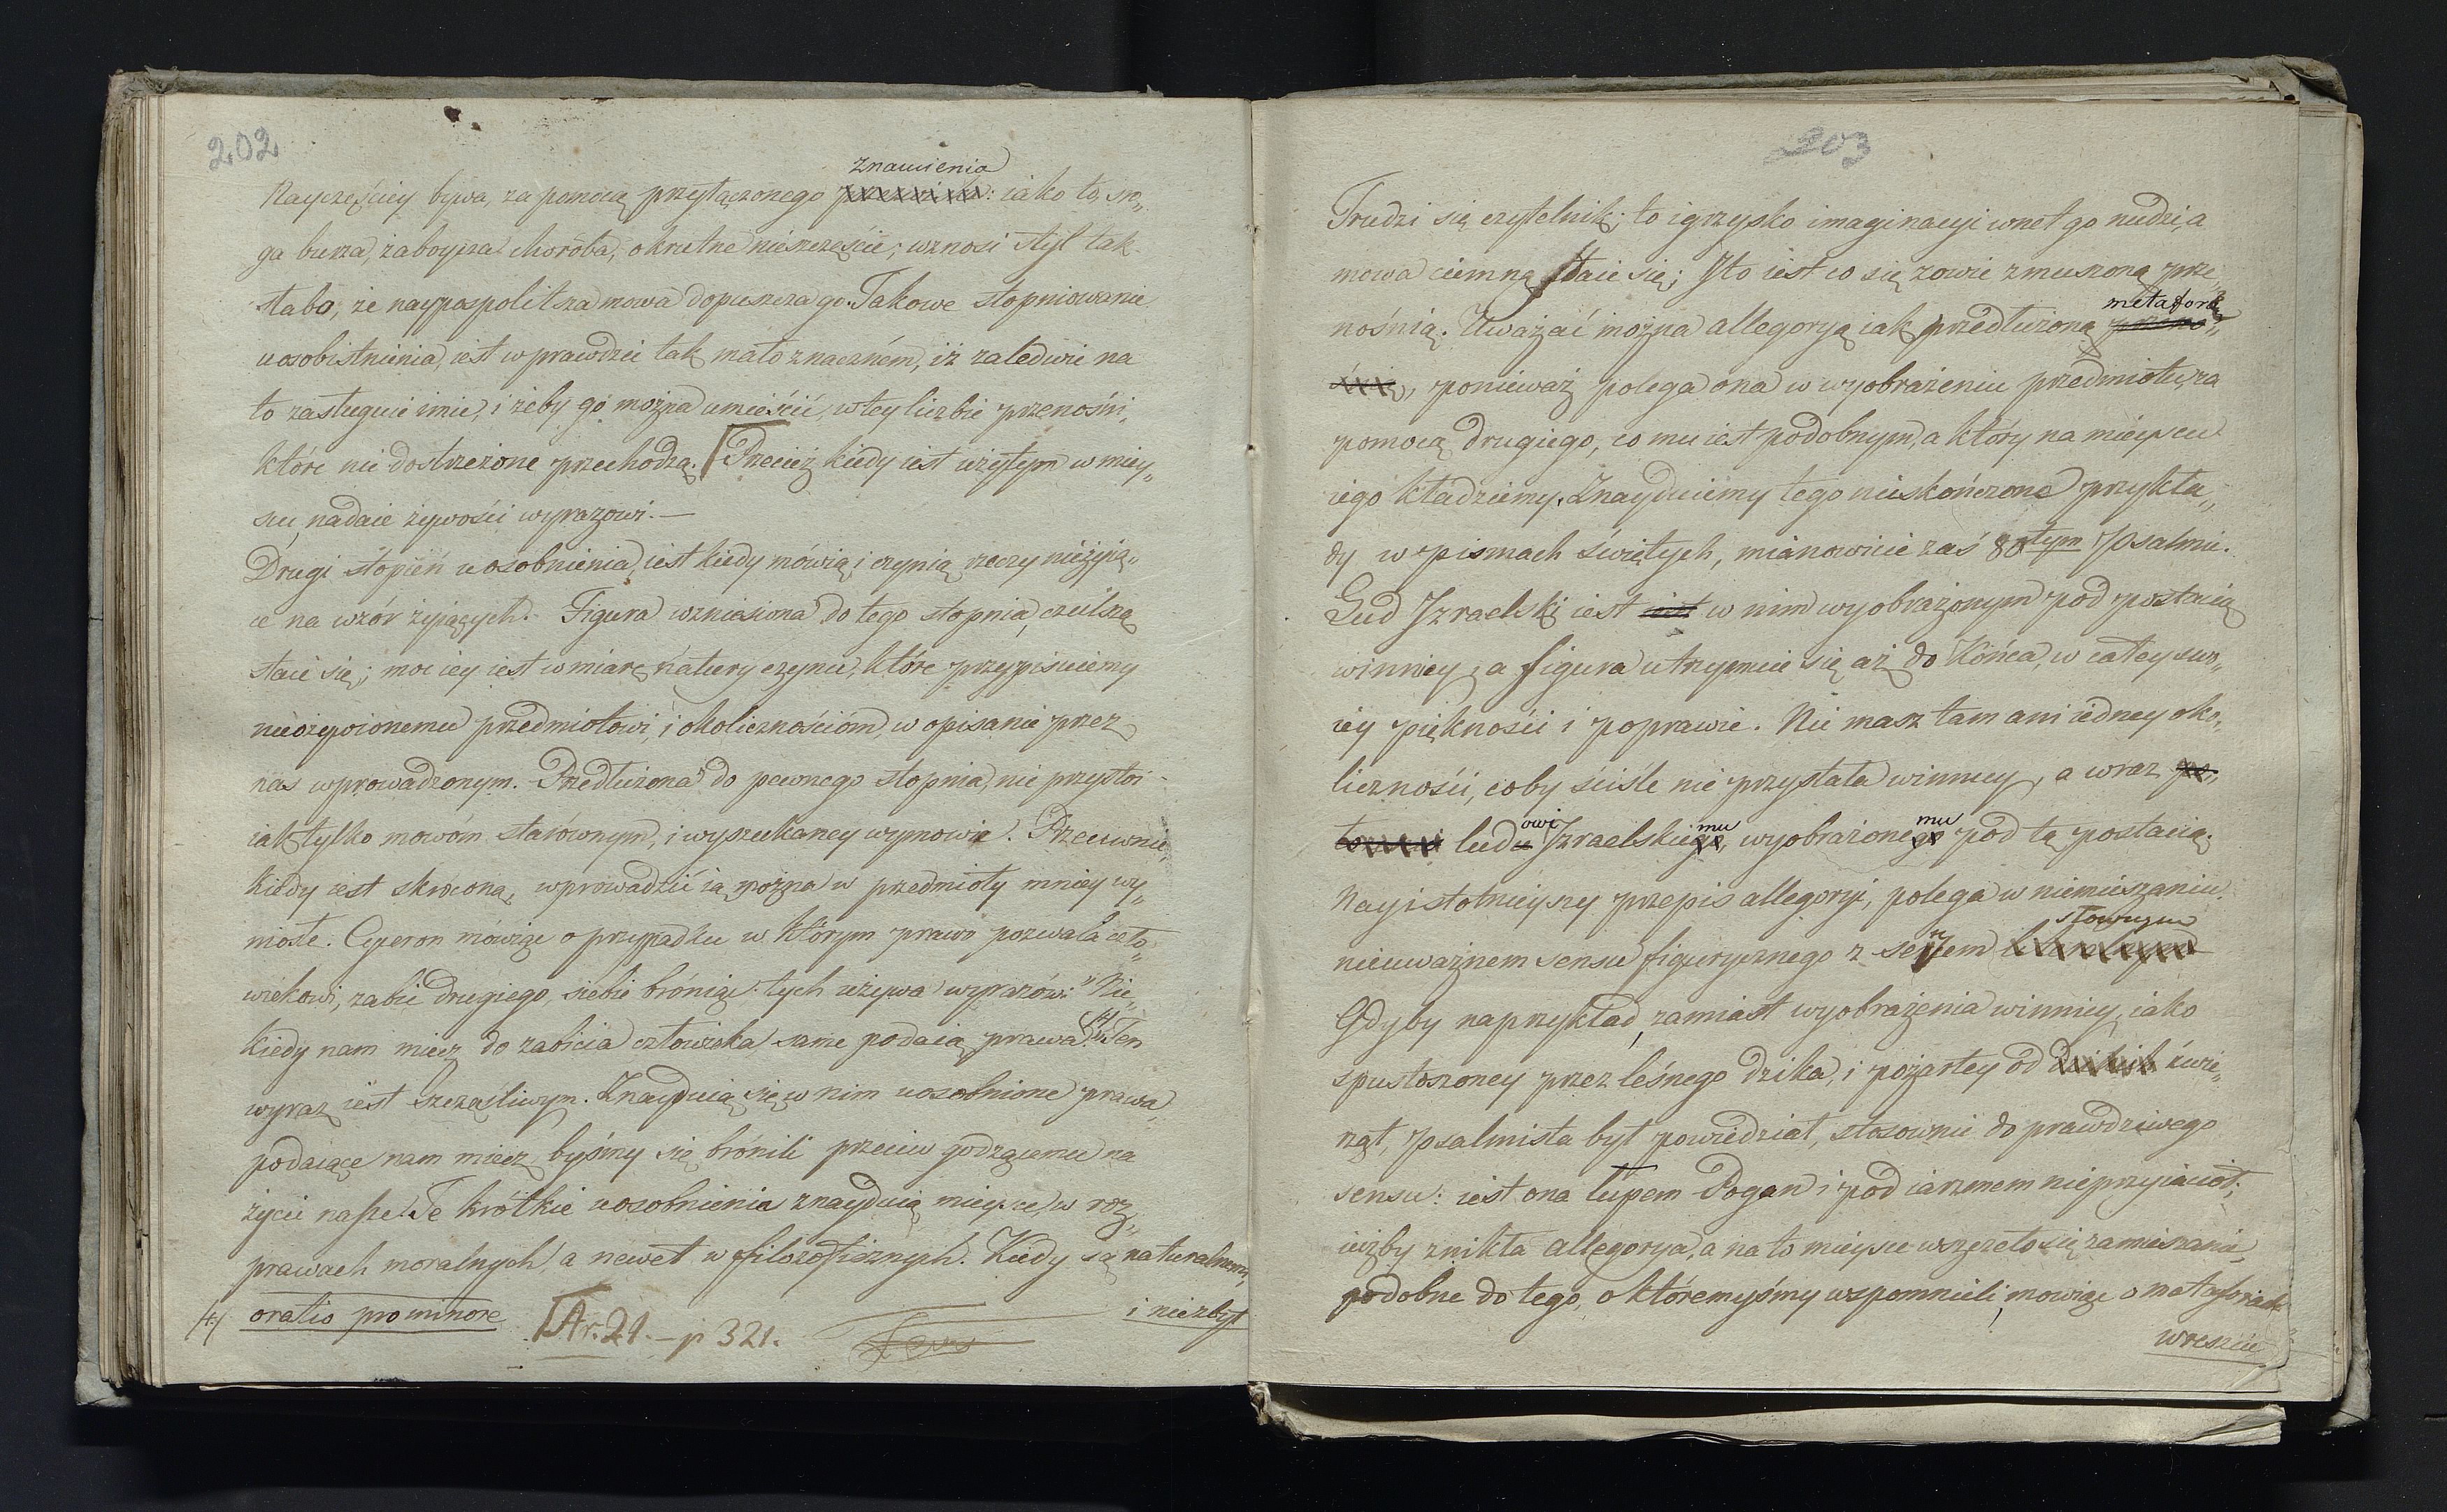 202
Znamienia
Nayczęściey bywa, za pomocą przyłączonego przezwiska: iako to, sro„
ga burza, zaboycza choroba, okrutne nieszczęście; wznosi styl tak
słabo, że naypospolitsza mowa dopuszcza go. Takowe stopniowanie
uosobistnienia, iest wprawdzie tak mało znaczném, iż zaledwie na
to zasługuie imie, i żeby go można umieścić w tey liczbie przenośni,
które nie dostrzeżone przechodzą. Przecież kiedy iest użytym w miey„
scu, nadaie żywości wyrazowi.—
Drugi stopień uosobnienia, iest kiedy mówią i czynią rzeczy nieżyią„
ce na wzór żyiących. Figura wzniesiona do tego stopnia, czulszą
staie się; moc iey iest w miarę natury czynu, które przypisuiemy
nieożywionemu przedmiotowi, i okolicznościom, w opisanie przez
nas wprowadzonym. Przedłużona do pewnego stopnia, nie przystoi
iak tylko mowóm starównym, i wyszukaney wymowie. Przeciwnie
kiedy iest skróconą, wprowadzić ią można w przedmioty mniey wy„
niosłe. Cyceron mówiąc o przypadku w którym prawo pozwala czło„
wiekowi, zabić drugiego, siebie broniąc tych używa wyrazów: "Nie„
kiedy nam miecz do zabicia człowieka same podaią prawa." (4) Ten
wyraz iest szczęśliwym. Znayduią się w nim uosobnione prawa
podaiące nam miecz, byśmy się bronili przeciw godzącemu na
życie nasze. Te krótkie uosobnienia znayduią mieysce w roz„
prawach moralnych, a nawet w filozoficznych. Kiedy są naturalnemi,
i niezbyt
(4) oratio pro minore
Ar. 21. — p 321.
203
Trudzi się czytelnik; to igrzysko imaginacyi wnet go nudzi, a
mowa ciemną staie się; J to iest co się zowie zmuszoną prze„
metaforę
nośnią. Uważać można allegoryą iak przedłużoną przeno„
śnię, ponieważ polega ona w wyobrażeniu przedmiotu, za
pomocą drugiego, co mu iest podobnym, a który na mieyscu
iego kładziemy. Znayduiemy tego nieskończone przykła„
dy w pismach świętych, mianowicie zaś 80tym Psalmie.
Lud Jzraelski iest iest w nim wyobrażonym pod postacią
winnicy, a figura utrzymuie się aż do końca, w całey swo„
iey piękności i poprawie. Nie masz tam ani iedney oko„
liczności, coby ściśle nie przystała winnicy, a wraz po„
owi mu mu
ludu Jzraelskiego, wyobrażonego pod tą postacią.
Nayistotnieyszy przepis allegoryi, polega w niemieszaniu
słownym
nieuważnem sensu figurycznego z sensem
Gdyby naprzykład, zamiast wyobrażenia winnicy, iako
spustoszoney przez leśnego dzika, i pożartey od dzikich źwie„
rząt, Psalmista był powiedział, stosownie do prawdziwego
sensu: iest ona łupem Pogan i pod iarzmem nieprzyiaciół;
iużby znikła allegorya, a na to mieysce wszczęło się zamieszanie
podobne do tego, o któremyśmy wspomnieli, mówiąc o metaforach
wreszcie